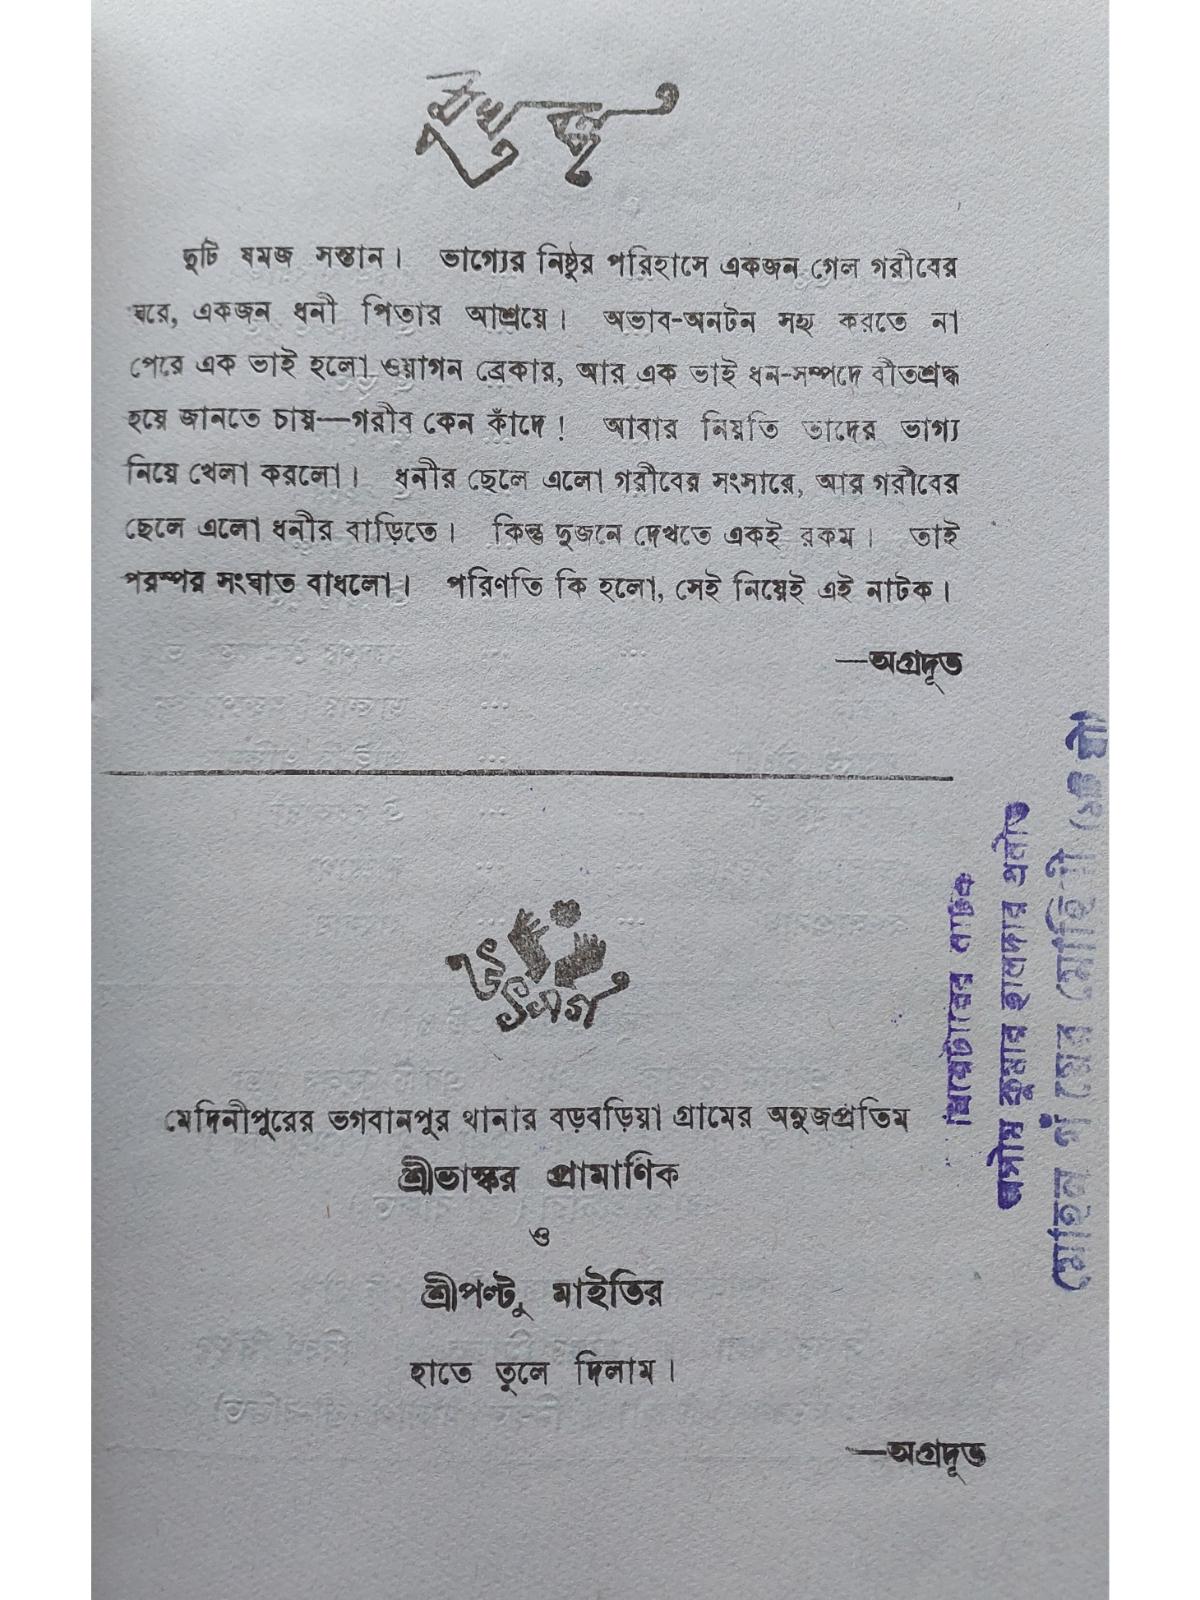 মুখবন্ধ
দুটি যমজ সন্তান। ভাগ্যের নিষ্ঠুর পরিহাসে একজন গেল গরীবের
ঘরে, একজন ধনী পিতার আশ্রয়ে। অভাব-অনটন সহ্য করতে না
পেরে এক ভাই হলো ওয়াগন ব্রেকার, আর এক ভাই ধন-সম্পদে বীতশ্রদ্ধ
হয়ে জানতে চায়—গরীব কেন কাঁদে! আবার নিয়তি তাদের ভাগ্য
নিয়ে খেলা করলো। ধনীর ছেলে এলো গরীবের সংসারে, আর গরীবের
ছেলে এলো ধনীর বাড়িতে। কিন্তু দুজনে দেখতে একই রকম। তাই
পরস্পর সংঘাত বাধলো। পরিণতি কি হলো, সেই নিয়েই এই নাটক।
—অগ্রদূত
উৎসর্গ
মেদিনীপুরের ভগবানপুর থানার বড়বড়িয়া গ্রামের অনুজপ্রতিম
শ্রীভাস্কর প্রামাণিক
ও
শ্রীপল্টু মাইতির
হাতে তুলে দিলাম।
—অগ্রদূত
থিয়েটারের নাটক
কুমার হালদার প্রণীত